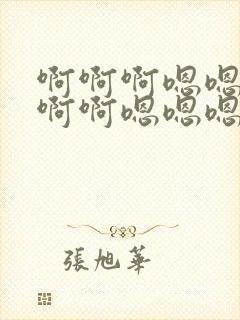 啊啊啊嗯嗯
啊啊嗯嗯嗯
張旭華